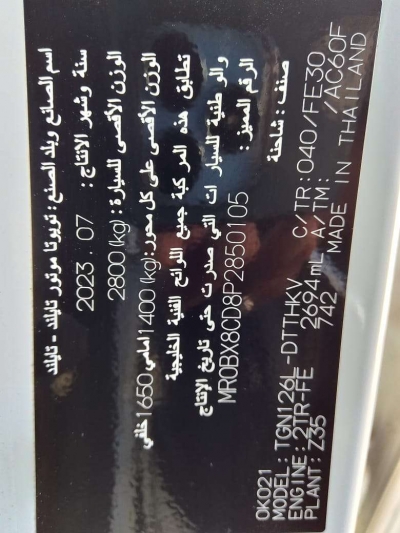 اسم الصانع وبلد الصنع : تويوتا موتور تايلند - تايلند
سنة وشهر الإنتاج : 2023 . 07
الوزن الأقصى للسيارة : 2800 (kg)
الوزن الأقصى على كل محور : 1400 (kg) امامي 1650 خلفي
تطابق هذه المركبة جميع اللوائح الفنية الخليجية
والوطنية للسيارات التي صدرت حتى تاريخ الإنتاج
الرقم المميز : MR0BX8CD8P2850105
صنف : شاحنة
0K021
MODEL : TGN126L -DTTHKV C/TR : 040/FE30
ENGINE : 2TR-FE 2694mL A/TM : /AC60F
PLANT : Z35 742 MADE IN THAILAND